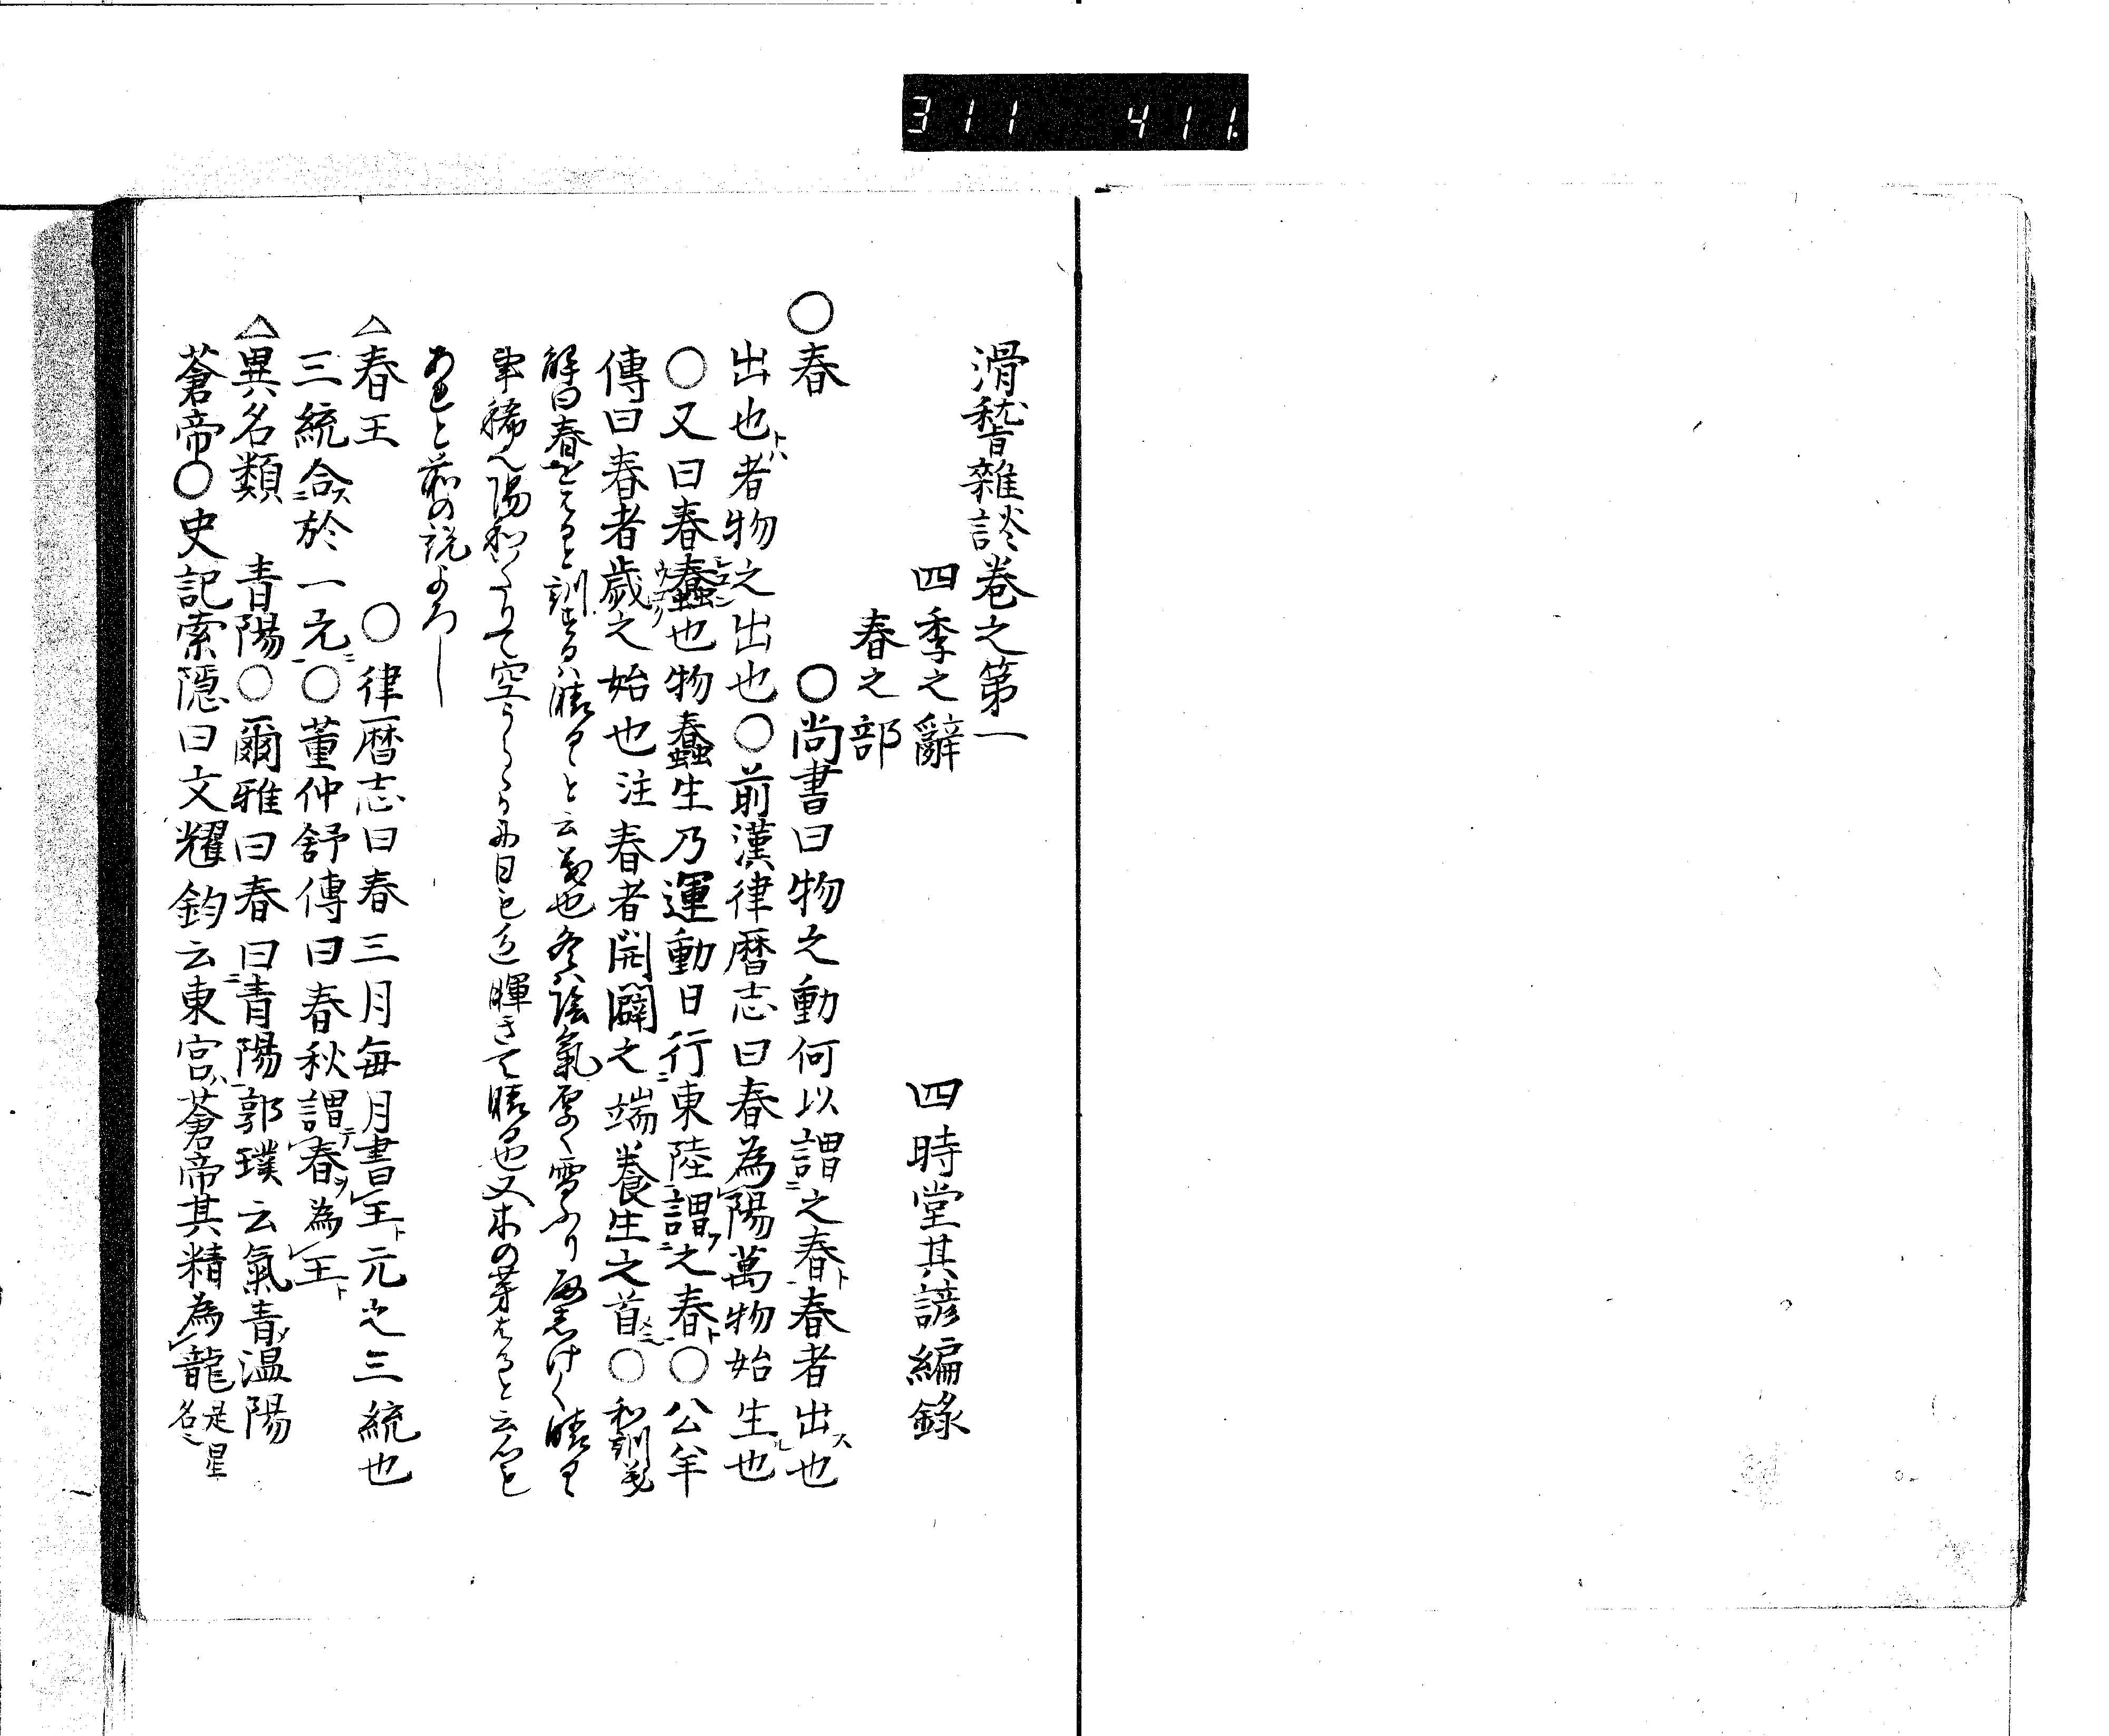 311 411.
滑稽雜談巻之第一
四季之辭 四時堂其諺編錄
春之部
〇春 〇尚書曰物之動何以謂之春春者出也
出也者物之出也〇前漢律暦志曰春為陽萬物始生也
〇又曰春蠢也物蠢生乃運動日行東陸謂之春〇公羊
傳曰春者歳之始也注春者開闢之端養生之首〇和訓義
解曰春をはると訓するハ晴ると云義也冬ハ陰氣厚く雪ふり晴る
事稀也陽和にして空うらゝか日も輝きて晴る也又木の芽はると云
あれと前の説よろし
△春王 〇律暦志曰春三月毎月書王元之三統也
三統合於一元〇董仲舒傳曰春秋謂春為王
△異名類 青陽〇爾雅曰春曰青陽郭璞云氣青温陽
蒼帝〇史記索隠曰文耀鈞云東宮蒼帝其精為龍是星名